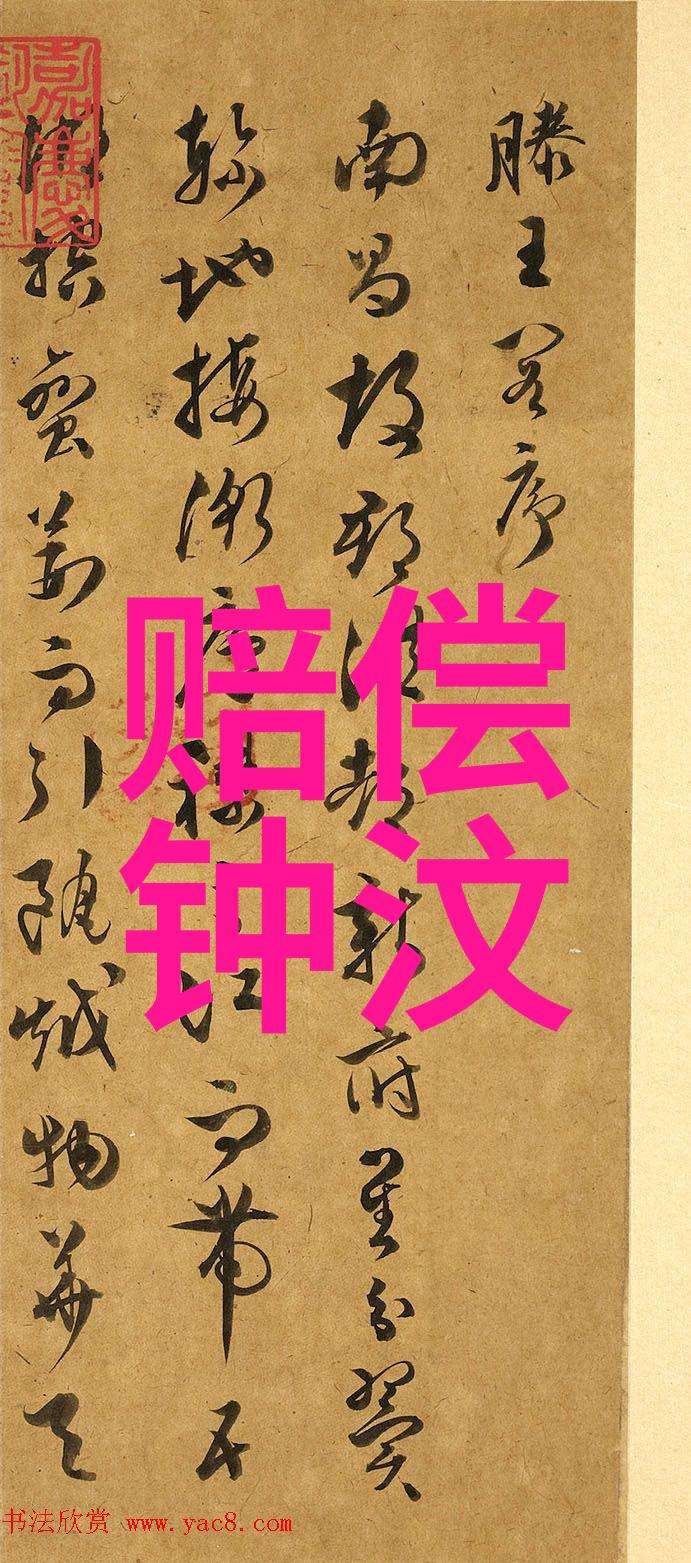 滕王閣序
南昌故郡洪都新府星分翼
軫地接衡廬襟江而帶五
湖控蠻荊而引甌越物華天
赔偿
钟汶
书法欣赏 www.yac8.com